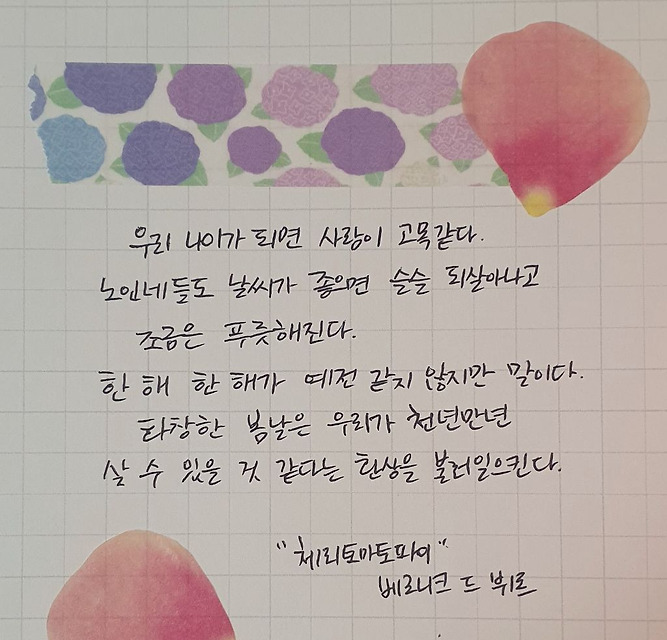 우리 나이가 되면 사람이 고목같다.
노인네들도 날씨가 좋으면 슬슬 되살아나고
조금은 푸릇해진다.
한 해 한 해가 예전 같지 않지만 말이다.
화창한 봄날은 우리가 천년만년
살 수 있을 것 같다는 환상을 불러일으킨다.
"체리토마토파이"
베로니크 드 뷔르